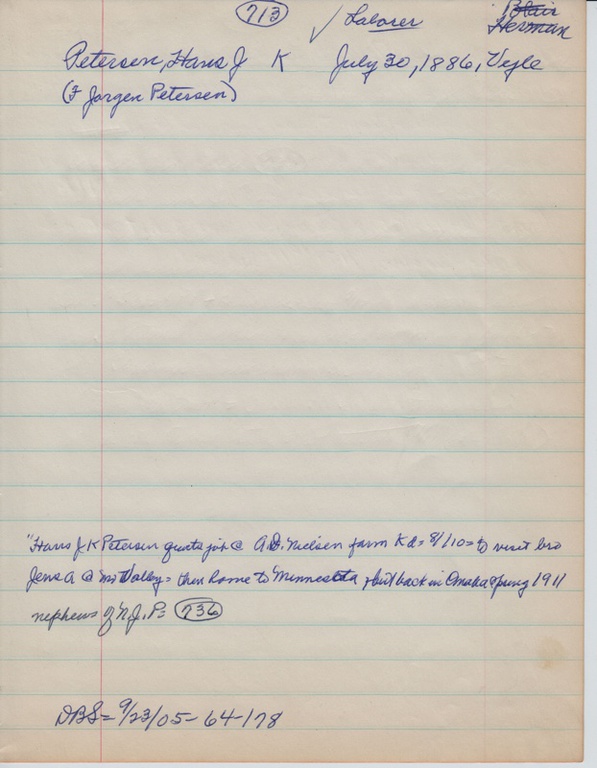 713
✓ Laborer
Blair
Herman
Petersen, Hans J K July 30, 1886, Vejle
(F Jorgen Petersen)
"Hans J K Petersen quits job @ A.D. Nielsen farm Ka= 8/10= to visit bro
Jens A @ Valley= then home to Minnesota, but back in Omaha spring 1911
nephew= of N.J.P= 736
DBS= 9/23/05- 64-178